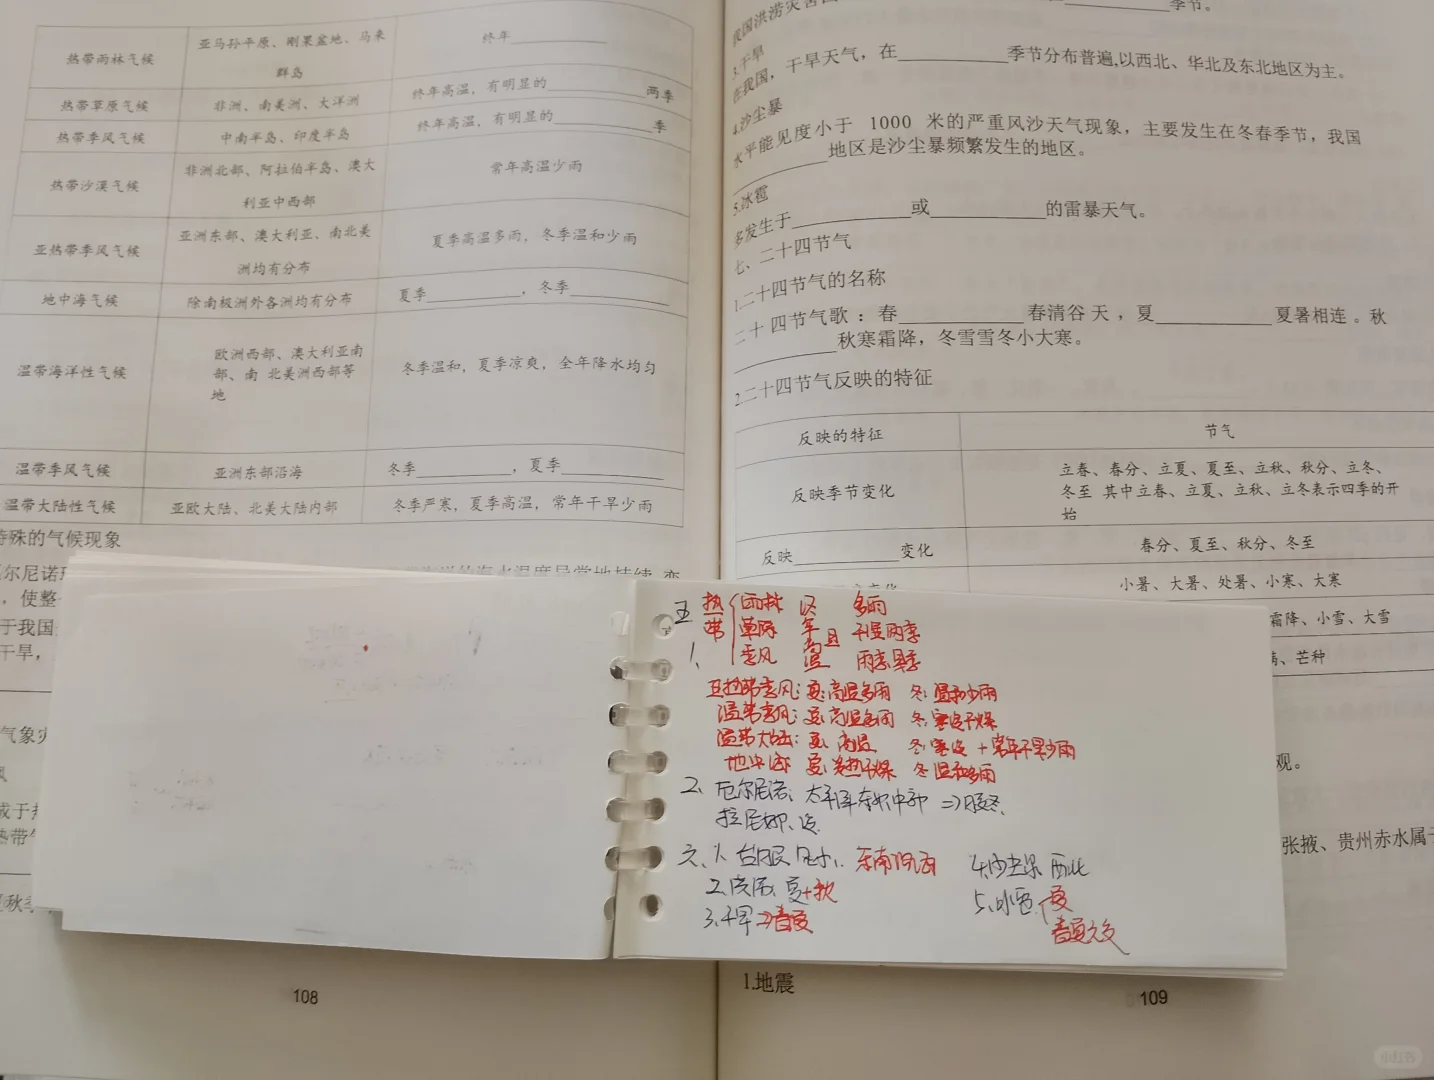 热带雨林气候 亚马孙平原、刚果盆地、马来群岛 终年__________
热带草原气候 非洲、南美洲、大洋洲 终年高温，有明显的__________两季
热带季风气候 中南半岛、印度半岛 终年高温，有明显的__________季
热带沙漠气候 非洲北部、阿拉伯半岛、澳大利亚中西部 常年高温少雨
亚热带季风气候 亚洲东部、澳大利亚、南北美洲均有分布 夏季高温多雨，冬季温和少雨
地中海气候 除南极洲外各洲均有分布 夏季__________，冬季__________
温带海洋性气候 欧洲西部、澳大利亚南部、南 北美洲西部等地 冬季温和，夏季凉爽，全年降水均匀
温带季风气候 亚洲东部沿海 冬季__________，夏季__________
温带大陆性气候 亚欧大陆、北美大陆内部 冬季严寒，夏季高温，常年干旱少雨
特殊的气候现象
，使整
于我国
干旱，
气象灾
或于热
热带气
夏秋季
108
我国洪涝灾害
__________季节。
3.干旱
在我国，干旱天气，在__________季节分布普遍,以西北、华北及东北地区为主。
4.沙尘暴
水平能见度小于 1000 米的严重风沙天气现象，主要发生在冬春季节，我国
__________地区是沙尘暴频繁发生的地区。
5.冰雹
多发生于__________或__________的雷暴天气。
七、二十四节气
1.二十四节气的名称
二十四节气歌：春__________春清谷天，夏__________夏暑相连。秋
__________秋寒霜降，冬雪雪冬小大寒。
2.二十四节气反映的特征
反映的特征 节气
反映季节变化 立春、春分、立夏、夏至、立秋、秋分、立冬、
冬至 其中立春、立夏、立秋、立冬表示四季的开
始
反映__________变化 春分、夏至、秋分、冬至
小暑、大暑、处暑、小寒、大寒
霜降、小雪、大雪
满、芒种
观。
张掖、贵州赤水属于
五、热带 雨林 终年高温且 多雨
1、 草原 干湿两季
季风 雨季旱季
亚热带季风：夏：高温多雨 冬：温和少雨
温带季风：夏：高温多雨 冬：寒冷干燥
温带大陆：夏：高温 冬：寒冷 +常年干旱少雨
地中海 夏：炎热干燥 冬 温和多雨
2、厄尔尼诺：太平洋东部中部
拉尼娜、冷
六、1、台风 东南沿海 4.沙尘暴 西北
2、洪涝、夏+秋 5、冰雹 夏
3、干旱⇒春夏 春夏之交
1.地震
109
小红书